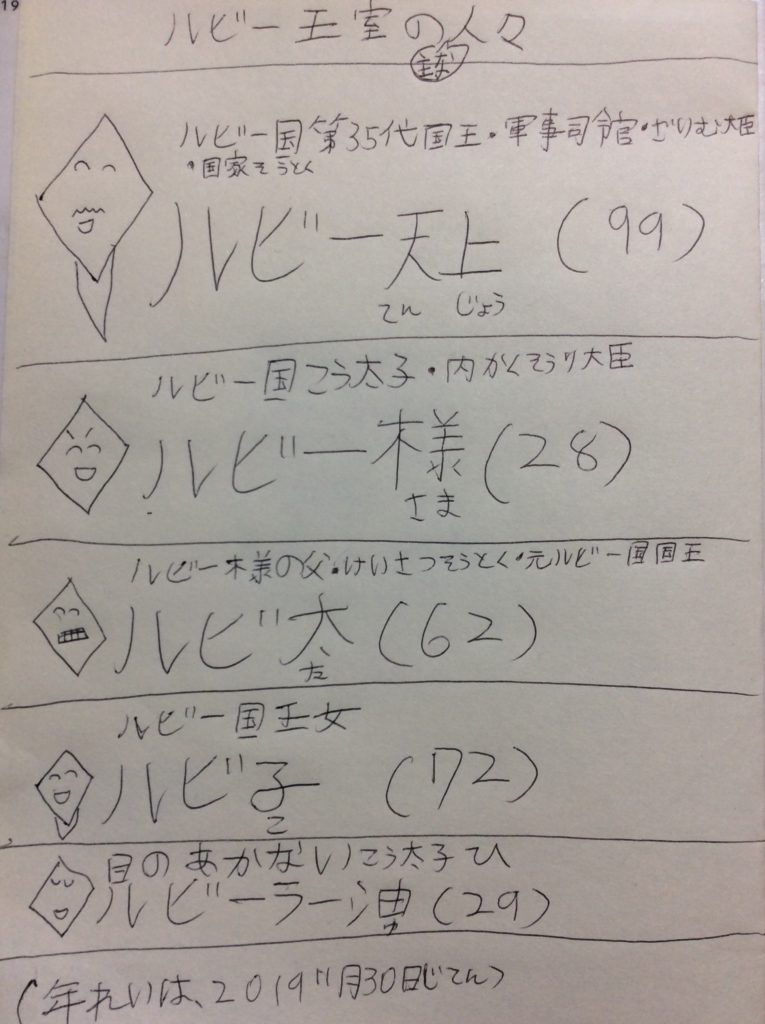 19
ルビー王室の人々
ルビー国第35代国王・軍事司令官・ざいむ大臣
・国家そうとく
ルビー天上(99)
てんじょう
ルビー国こう太子・内かくそうり大臣
ルビー様(28)
さま
ルビー様の父・けいさつそうとく・元ルビー国国王
ルビ太(62)
た
ルビー国王女
ルビ子(72)
こ
目のあかないこう太子ひ
ルビーラー油(29)
(年れいは、2019 11月30日じてん)